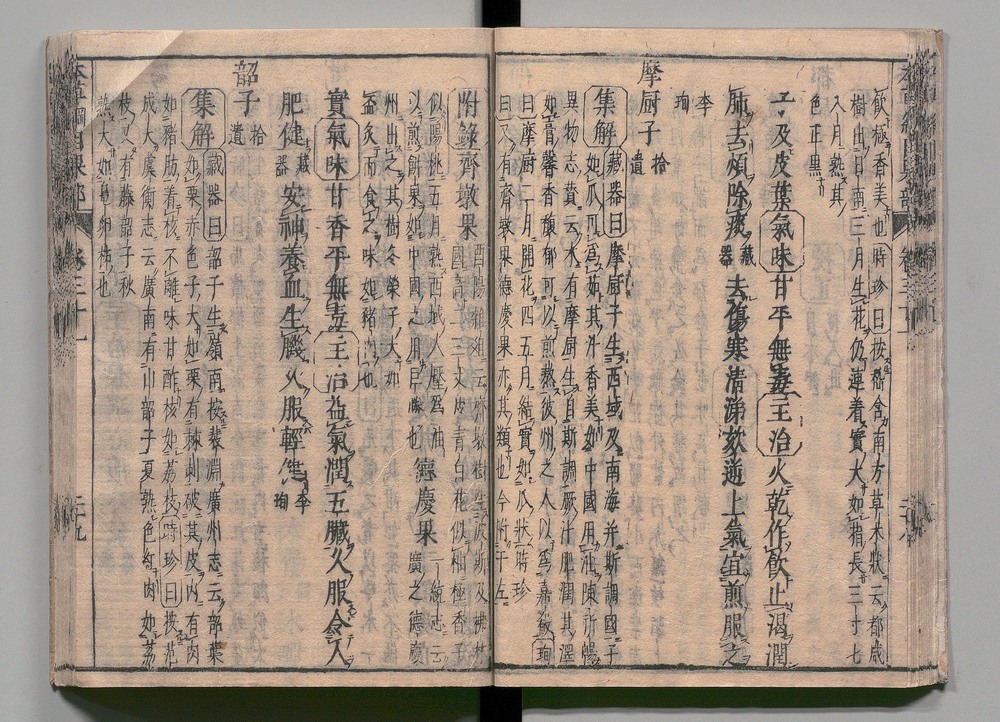 飲極香美也時珍曰按嵇含南方草木狀云都咸
樹出日南三月生花仍連着實大如指長三寸七
八月熟其
色正黑
子及皮葉氣味甘平無毒主治火乾作飲止渴潤
肺去煩除痰藏器去傷寒清涕欬逆上氣宜煎服之
李
珣
摩厨子拾遺
集解藏器曰摩厨子生西域及南海并斯調國子
如瓜可爲茹其汁香美如中國用油陳祈暢
異物志贊云木有摩厨生自斯調厥汁肥潤其澤
如膏馨香馥郁可以煎熬彼州之人以爲嘉殽珣
曰摩厨二月開花四五月結實如瓜狀時珍
曰又有齊墩果德慶果亦其類也今附于左
附錄齊墩果酉陽雜俎云齊墩樹生波斯及拂林
國高二三丈皮青白花似柚極香子
似陽桃五月熟西域人壓爲油
以煎餅果如中國之用巨勝也德慶果一統志云
廣之德慶
州出之其樹冬榮子大如
盃炙而食之味如豬肉也
實氣味甘香平無毒主治益氣潤五臟久服令人
肥健藏器安神養血生肌久服輕健李珣
韶子拾遺
集解藏器曰韶子生嶺南按裴淵廣州志云韶葉
如栗赤色子大如栗有棘刺破其皮內有肉
如豬肪着核不離味甘酢核如荔枝時珍曰按范
成大虞衡志云廣南有山韶子夏熟色紅肉如荔
枝又有藤韶子秋
熟大如鳧卵柿也